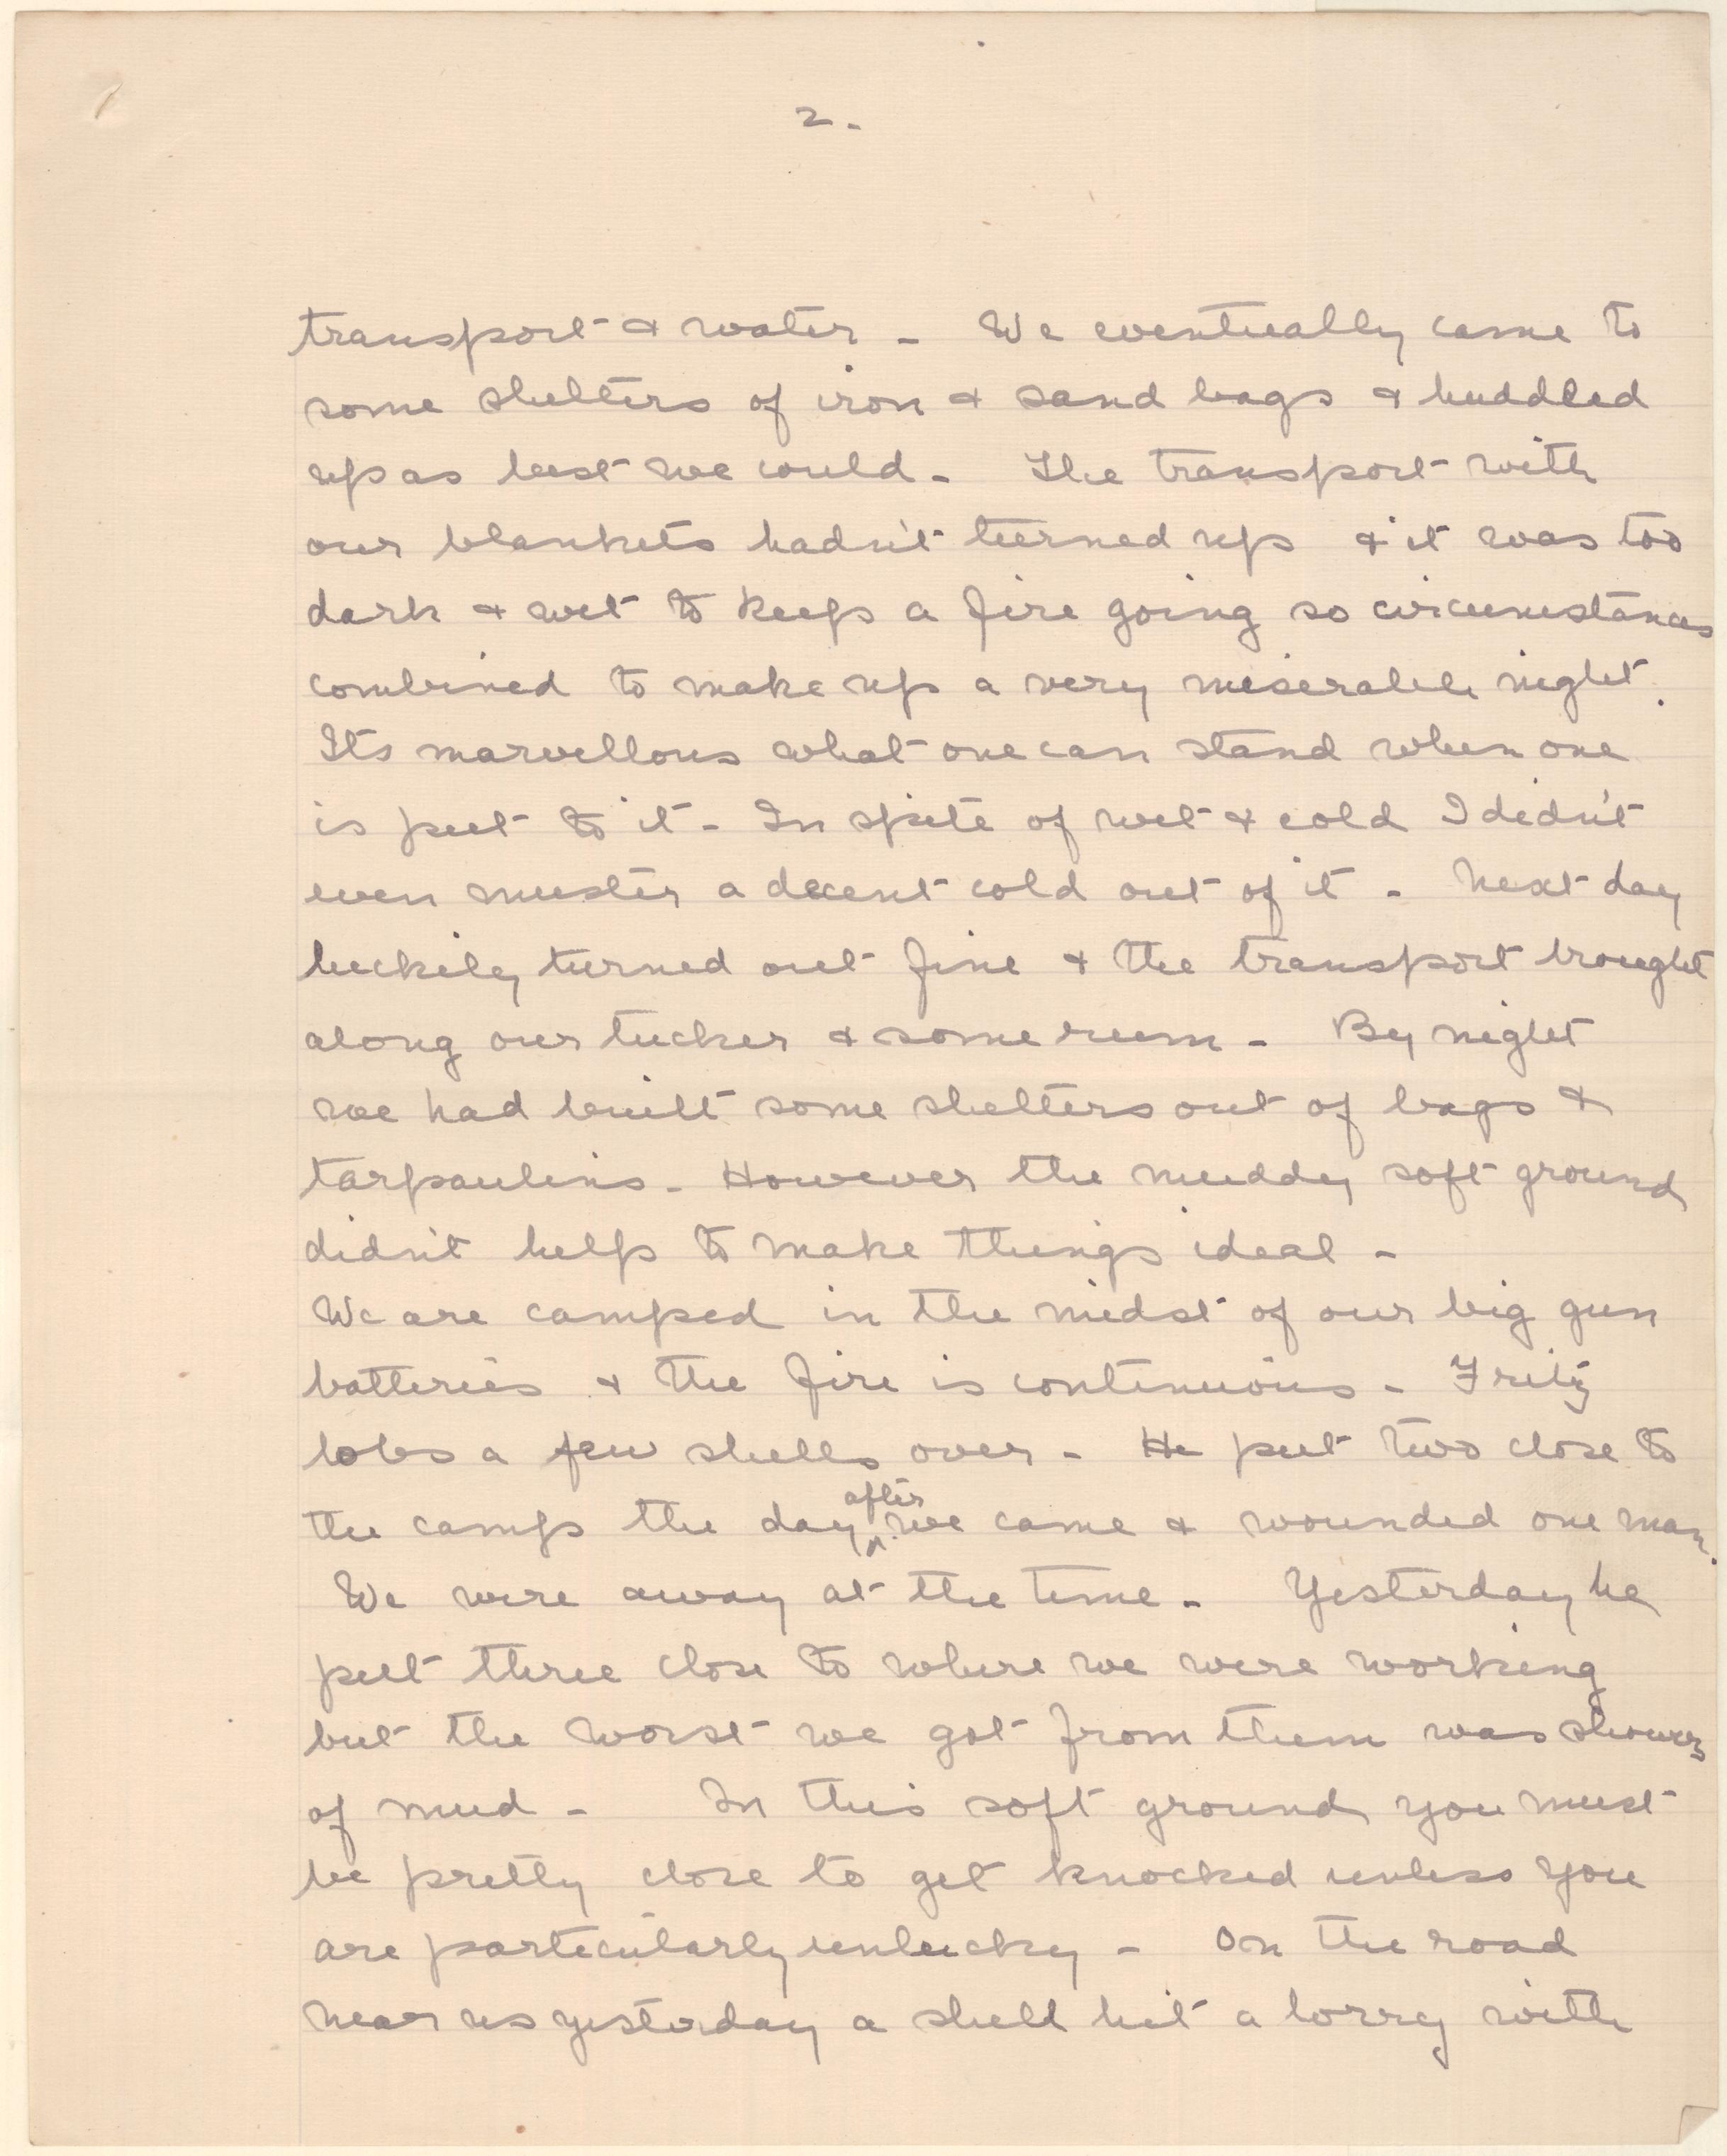 2.
transport & water - We eventually came to
some shelters of iron & sand bags & huddled
up as best we could - The transport with
our blankets hadn't turned up & it was too
dark & wet to keep a fire going so circumstances
combined to make up a very miserable night.
Its marvellous what one can stand when one
is put to it - In spite of wet & cold I didn't
even muster a decent cold out of it - Next day
luckily turned out fine & the transport brought
along our tucker & some rum - By night
we had built some shelters out of bags &
tarpaulins - However the muddy soft ground
didn't help to make things ideal -
We are camped in the midst of our big gun
batteries & the fire is continuous - Fritz
lobs a few shells over - He put two close to
the camp the day after we came & wounded one man.
We were away at the time - Yesterday he
put three close to where we were working
but the worst we got from them was showers
of mud - In this soft ground you must
be pretty close to get knocked unless you
are particularly unlucky - On the road
near us yesterday a shell hit a lorry with